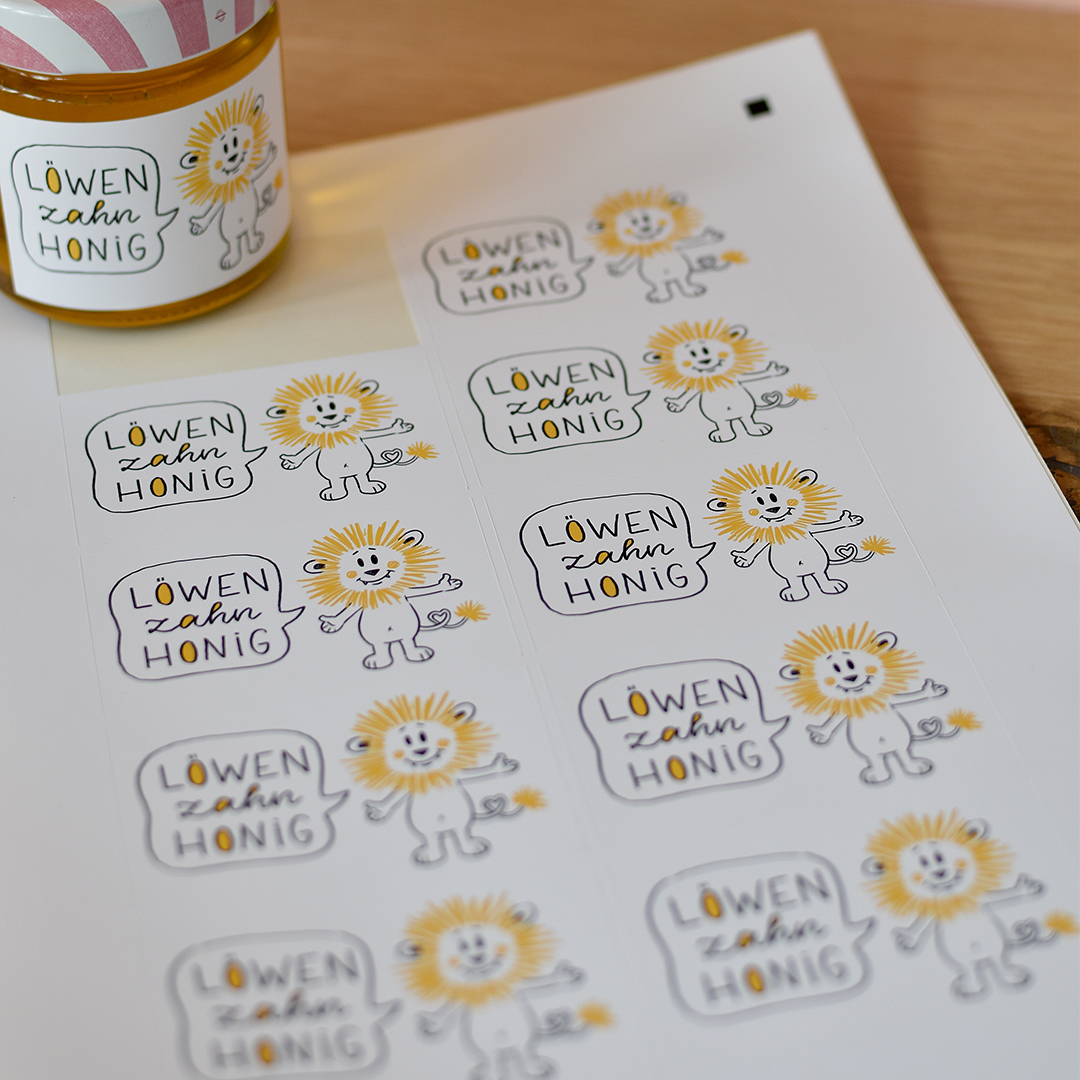 LÖWEN
zahn
HONIG
LÖWEN
zahn
HONIG
LÖWEN
zahn
HONIG
LÖWEN
zahn
HONIG
LÖWEN
zahn
HONIG
LÖWEN
zahn
HONIG
LÖWEN
zahn
HONIG
LÖWEN
zahn
HONIG
LÖWEN
zahn
HONIG
LÖWEN
zahn
HONIG